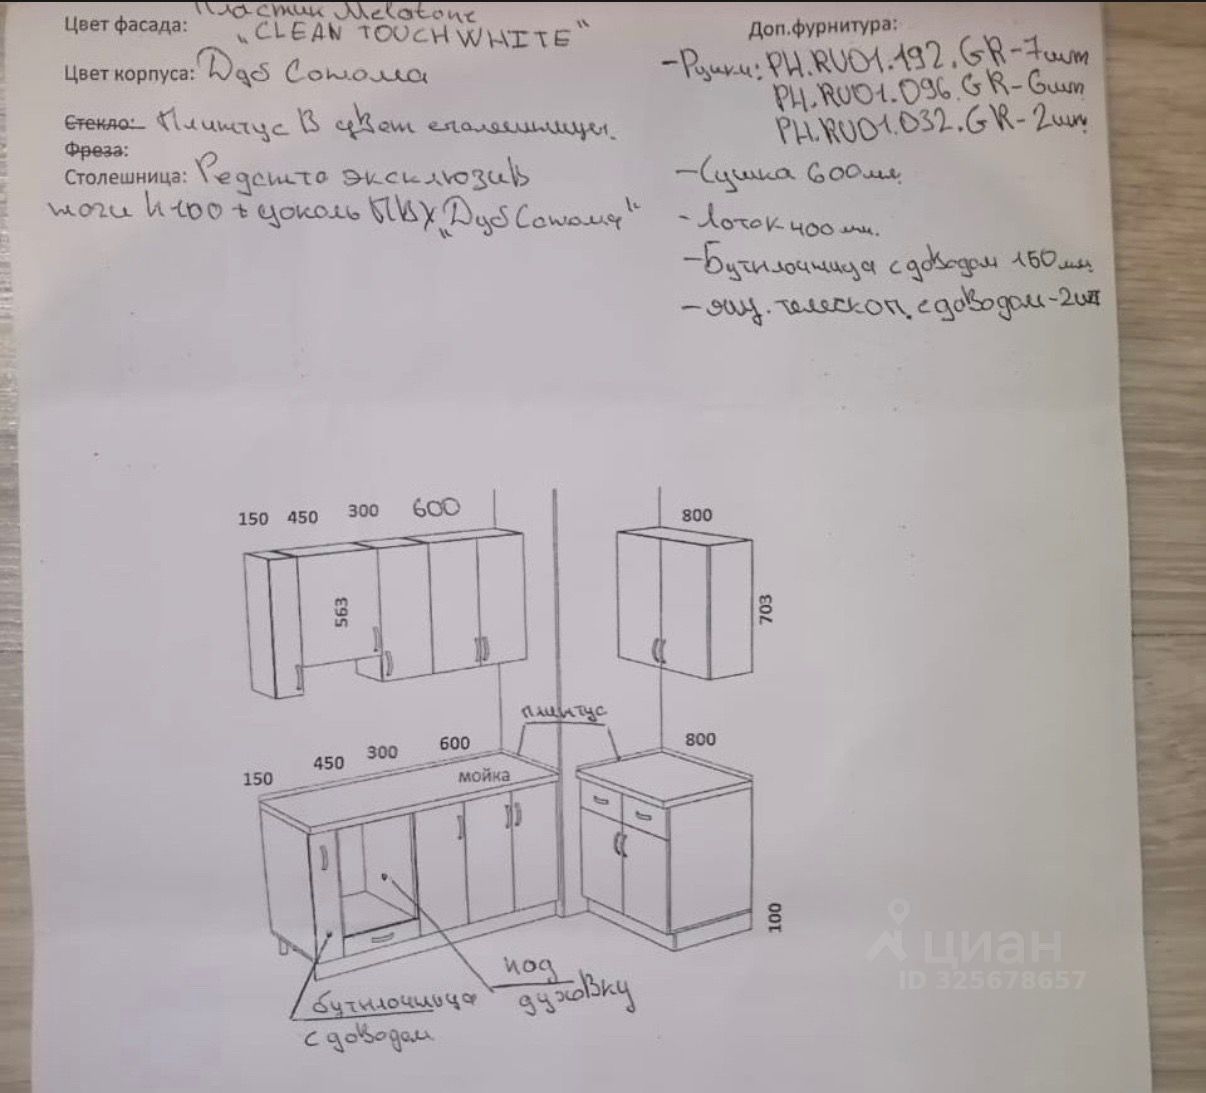 Цвет фасада: Пластик Melatone
"CLEAN TOUCH WHITE"
Цвет корпуса: Дуб Сонома
Стекло: Плинтус в цвет столешницы.
Фреза:
Столешница: Редстто эксклюзив
ноги h100 + цоколь ПВХ "Дуб Сонома"
Доп.фурнитура:
- Ручки: PH.RU01.192.GR-7шт
PH.RU01.096.GR-6шт
PH.RU01.032.GR-2шт
- Сушка 600мм
- Лоток 400мм.
- Бутилочница с доводом 150мм
- ящ. телескоп. с доводом-2шт
150 450 300 600
800
563
703
плинтус
150 450 300 600
800
мойка
100
под
духовку
бутилочница
с доводом
циан
ID 325678657